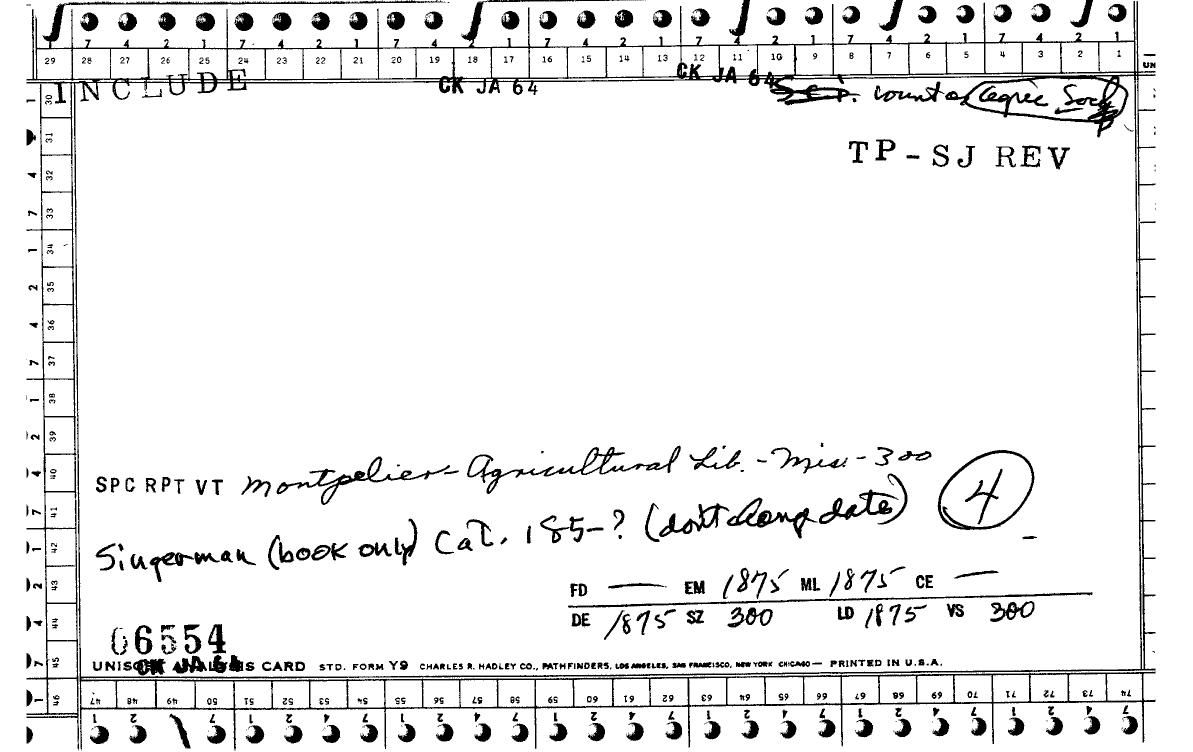 7 4 2 1 7 4 2 1 7 4 2 1 7 4 2 1 7 4 2 1 7 4 2 1
29 28 27 26 25 24 23 22 21 20 19 18 17 16 15 14 13 12 11 10 9 8 7 6 5 4 3 2 1
INCLUDE CK JA 64 CK JA 64 count as Agric Soc
TP-SJ REV
30
31
32
33
34
35
36
37
38
39
40
41
42
43
44
45
46
SPC RPT VT Montpelier - Agricultural Lib. - Misc - 300
4
Singerman (book only) Cat. 185-? (don't change date)
FD — EM 1875 ML 1875 CE —
DE 1875 SZ 300 LD 1875 VS 300
06554
CK JA 64
UNISORT ANALYSIS CARD STD. FORM Y9 CHARLES R. HADLEY CO., PATHFINDERS, LOS ANGELES, SAN FRANCISCO, NEW YORK CHICAGO — PRINTED IN U.S.A.
47 48 49 50 51 52 53 54 55 56 57 58 59 60 61 62 63 64 65 66 67 68 69 70 71 72 73 74